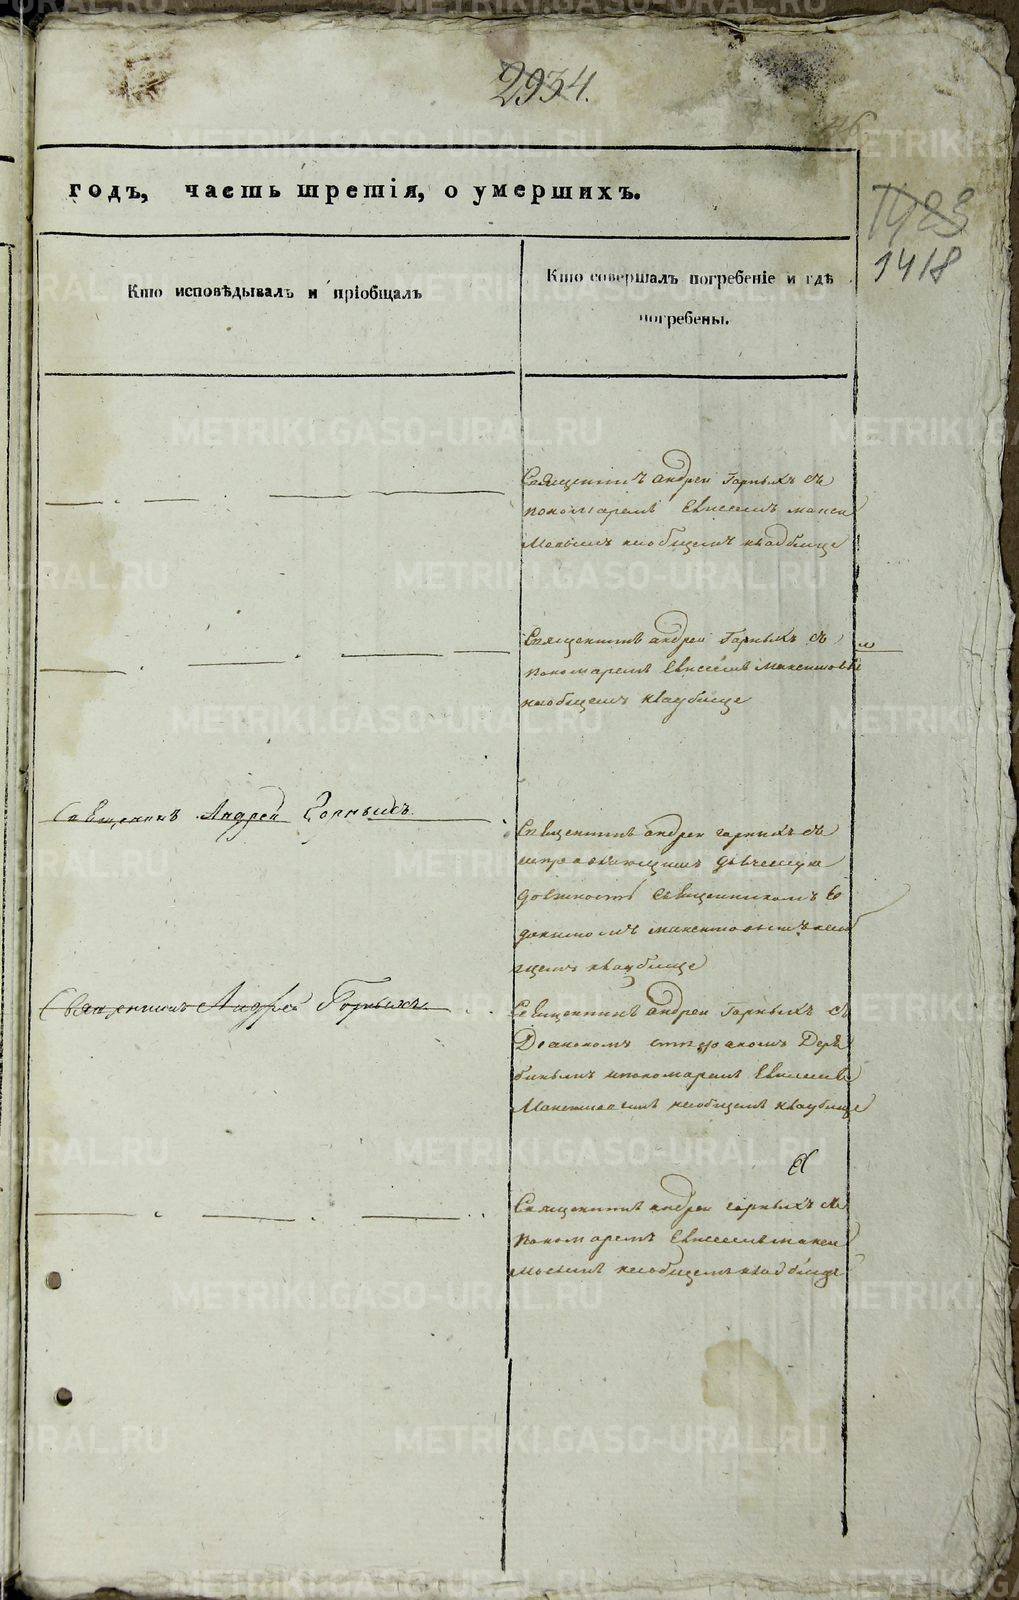 2934.
годъ, часть третія, о умершихъ.
1423
1418
Кто исповѣдывалъ и пріобщалъ
Кто совершалъ погребеніе и гдѣ
погребены.
Священникъ андреи Горныхъ съ
пономаремъ Евисеемъ макси
мовымъ наобщемъ кладбище
Священникъ андреи Горныхъ съ
пономаремъ Евисеемъ Максимовы
м
наобщемъ кладбище
Священникъ Андрей Горныхъ.
Священникъ андреи горныхъ съ
должность священникомъ
кладбище
Священникъ Андрей Горныхъ.
Священникъ андреи Горныхъ съ
Диакономъ стефаномъ Деря
бинымъ ипономаремъ Евисеемъ
Максимовымъ наобщемъ кладбище
Священникъ андреи горныхъ съ
пономаремъ Евисеемъ макси
мовымъ наобщемъ кладбище
METRIKI.GASO-URAL.RU